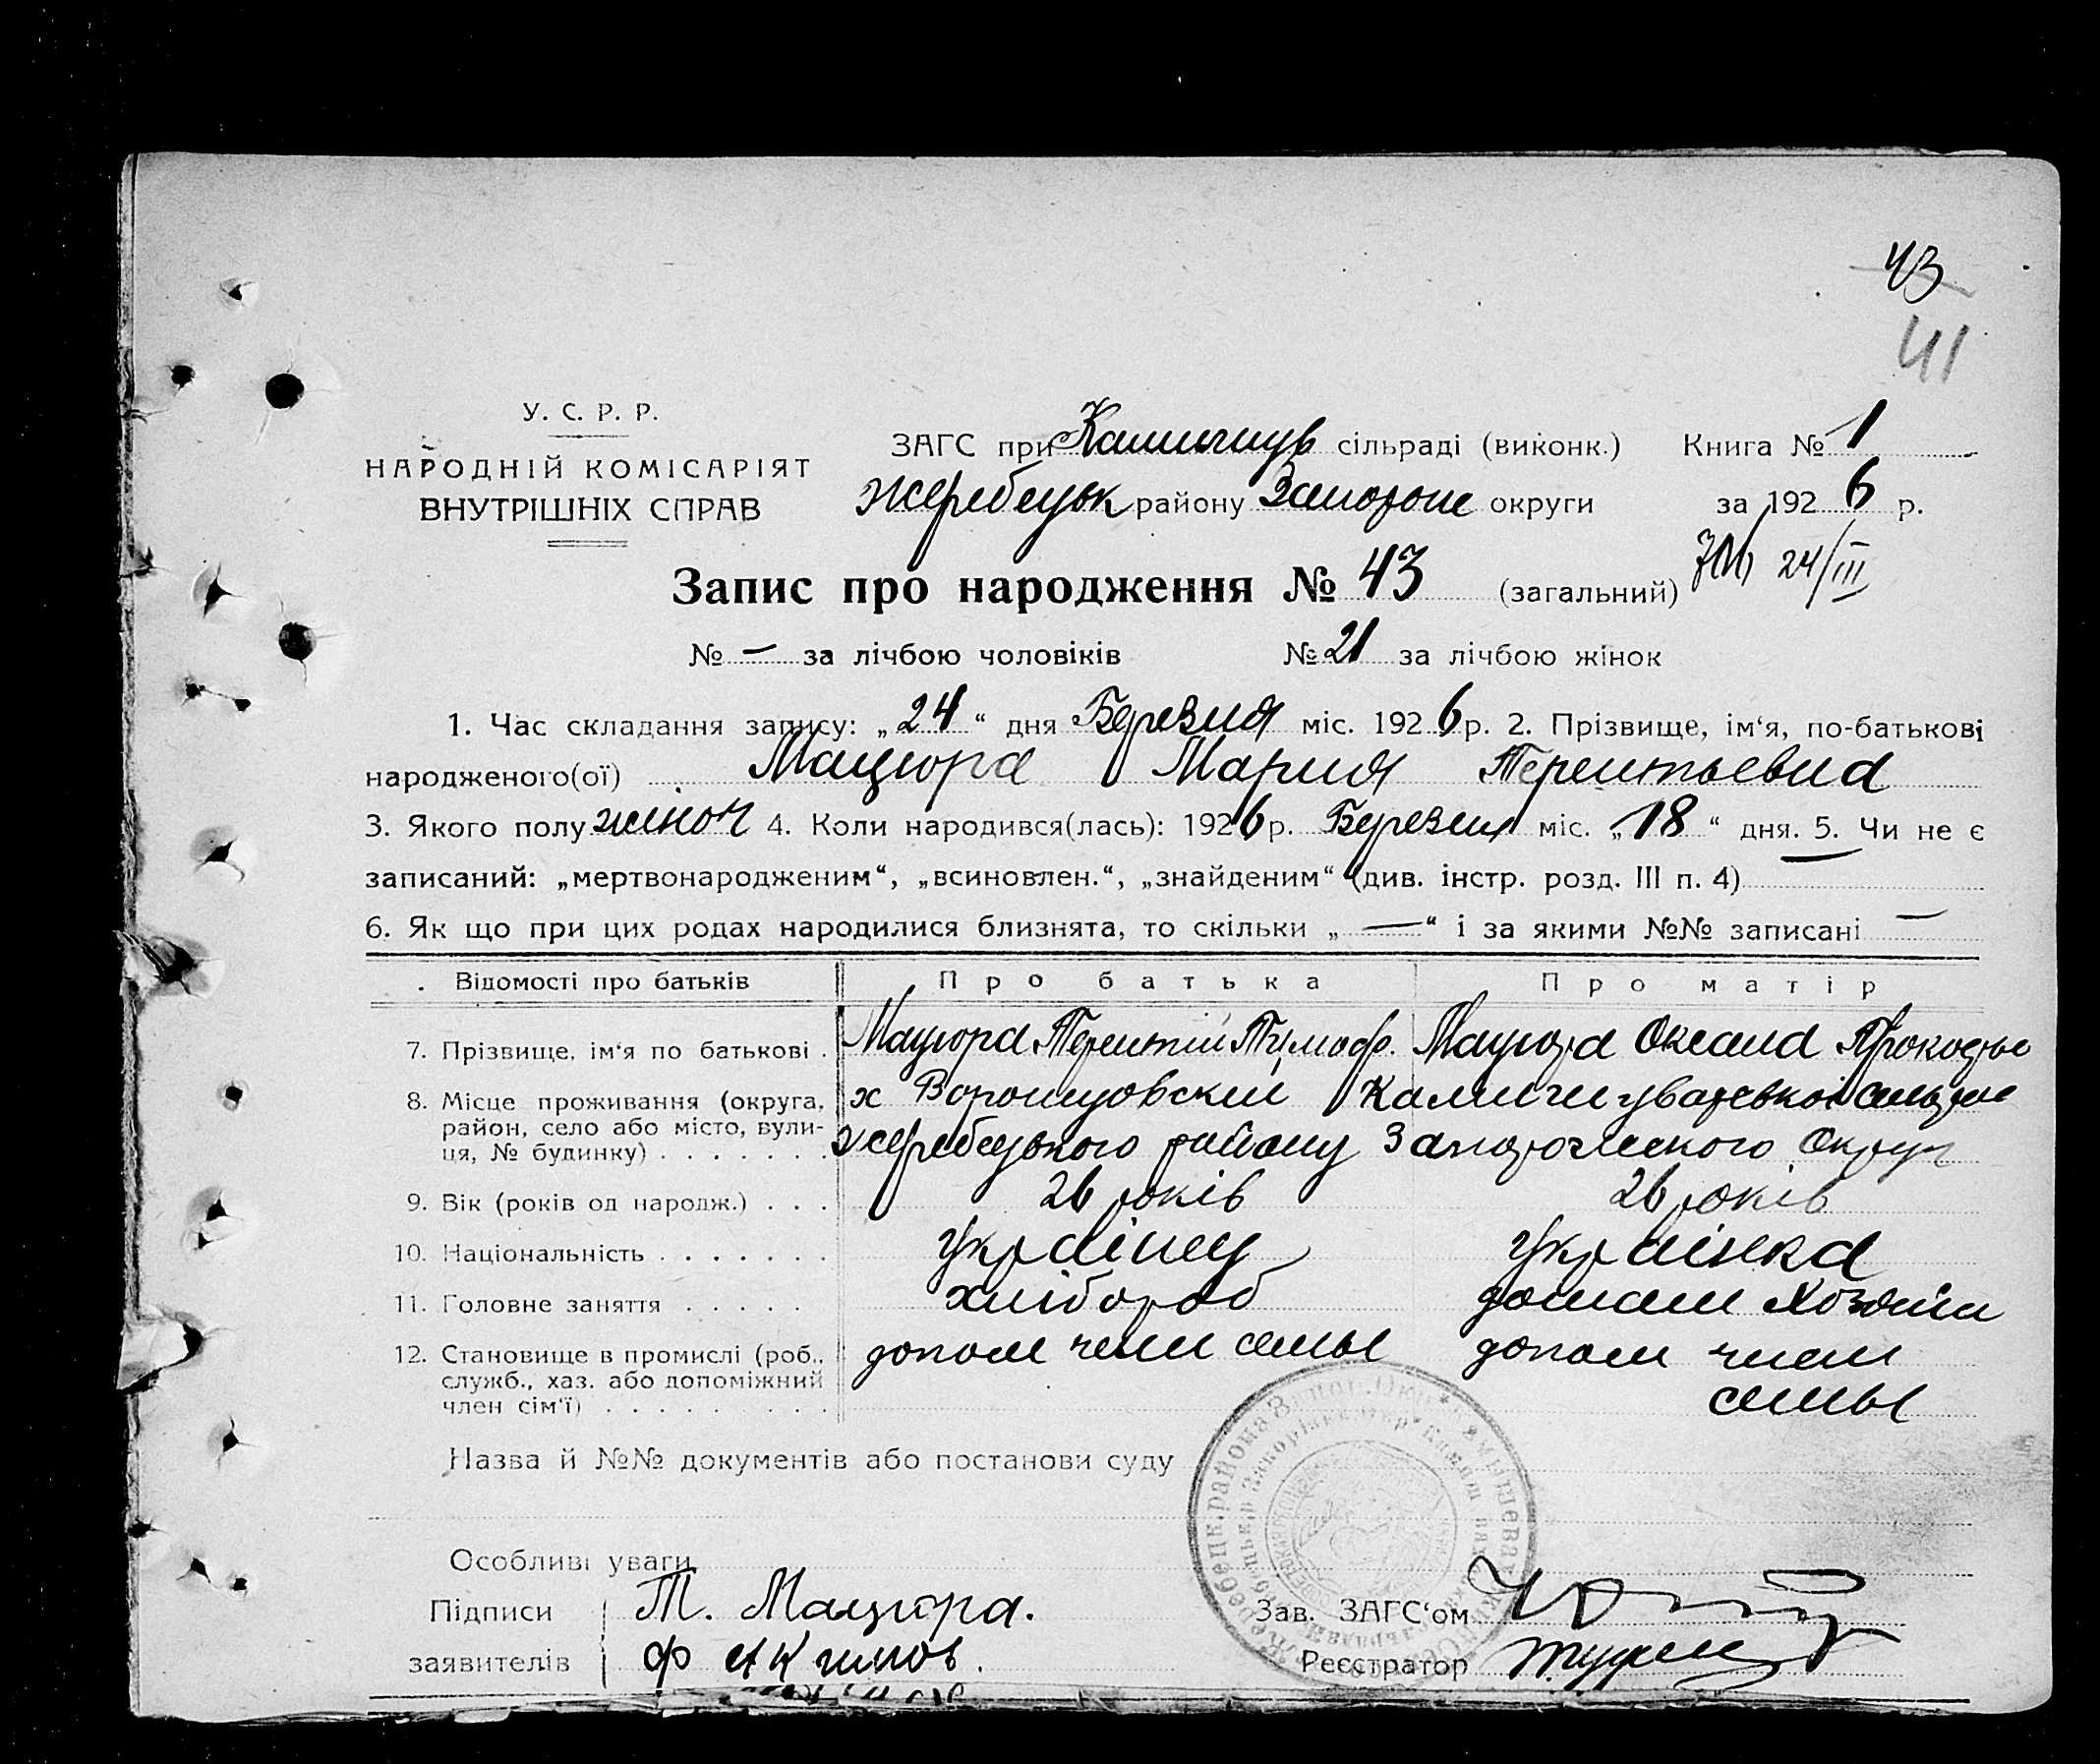 43
41
У. С. Р. Р.
НАРОДНІЙ КОМІСАРІЯТ
ВНУТРІШНІХ СПРАВ
ЗАГС при сільраді (виконк.) Книга № 1
Жеребецьк району Запорож округи за 1926 р.
24/III
Запис про народження № 43 (загальний)
№ — за лічбою чоловіків № 21 за лічбою жінок
1. Час складання запису: „24“ дня Березня міс. 1926 р. 2. Прізвище, ім‘я, по-батькові
народженого(ої) Мацюра Мария Терентьевна
3. Якого полу жіноч 4. Коли народився(лась): 1926 р. Березня міс. „18“ дня. 5. Чи не є
записаний: „мертвонародженим“, „всиновлен.“, „знайденим“ (див. інстр. розд. III п. 4) —
6. Як що при цих родах народилися близнята, то скільки „—“ і за якими №№ записані —
Відомості про батьків Про батька Про матір
7. Прізвище, ім‘я по батькові . Мацюра Терентій Тимоф. Мацюра Оксана Прокофье
8. Місце проживання (округа, район, село або місто, вули- ця, № будинку) . . . . . . .
х
Жеребецького району Запорожского Округ
9. Вік (років од народж.) . . . 26 років 26 років
10. Національність . . . . . . . українец українка
11. Головне заняття . . . . . хлібороб домашн Хозяйка
12. Становище в промислі (роб., допом член семьи допом член
служб., хаз. або допоміжний семьи
член сім‘ї) . . . . . . . . .
Назва й №№ документів або постанови суду
Особливі уваги
Підписи Т. Мацюра. Зав. ЗАГС‘ом
заявителів Ф Акимов. Реєстратор